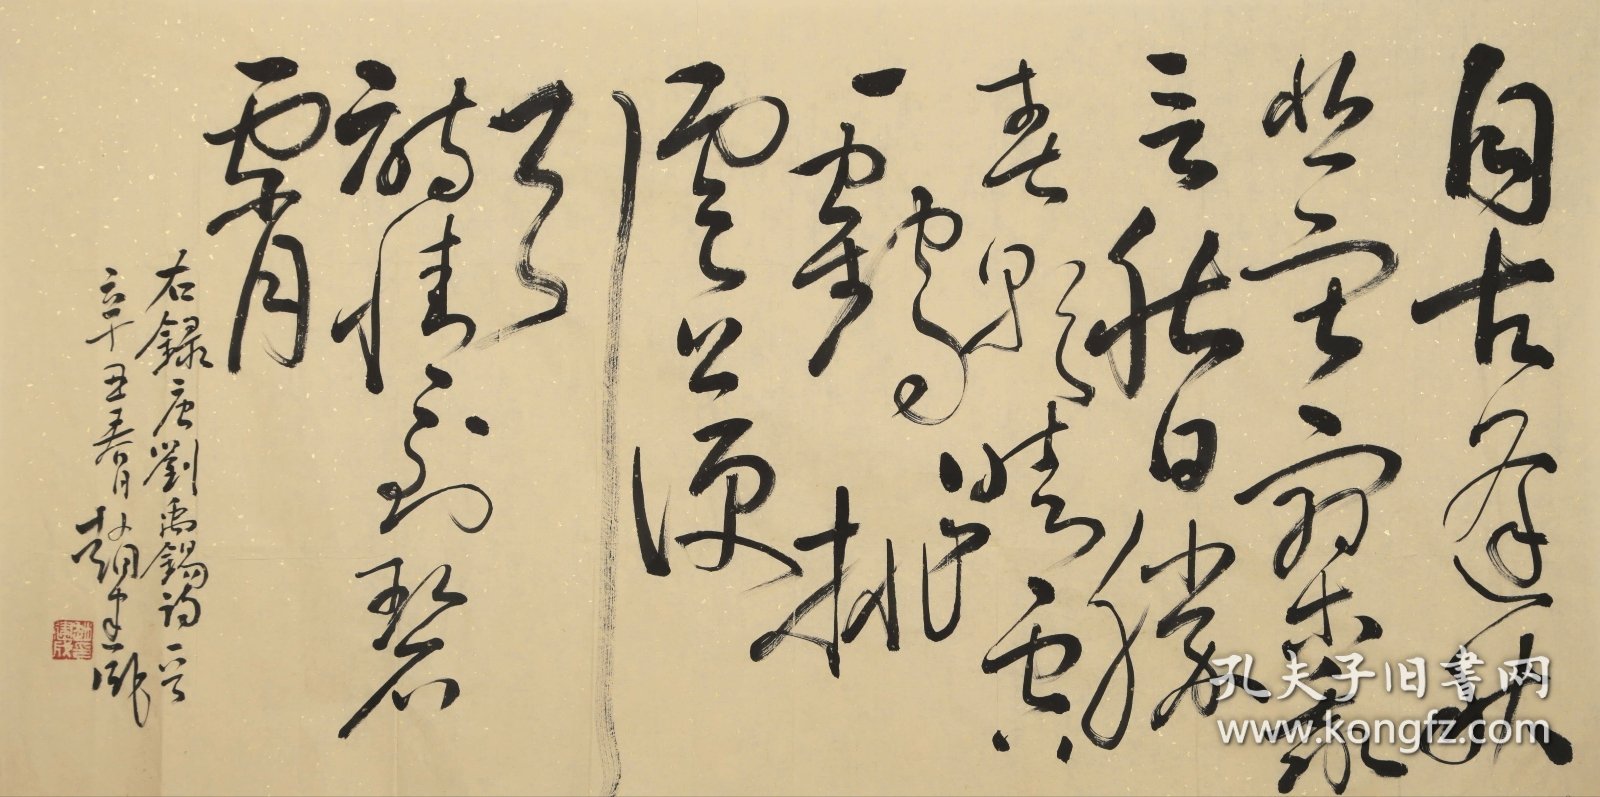 自古逢秋
悲寂寥我
言秋日勝
春朝晴空
一鶴排
雲上便
引
詩情到碧
霄
右録唐劉禹錫詩一首
辛丑春月趙建
孔夫子旧书网
www.kongfz.com